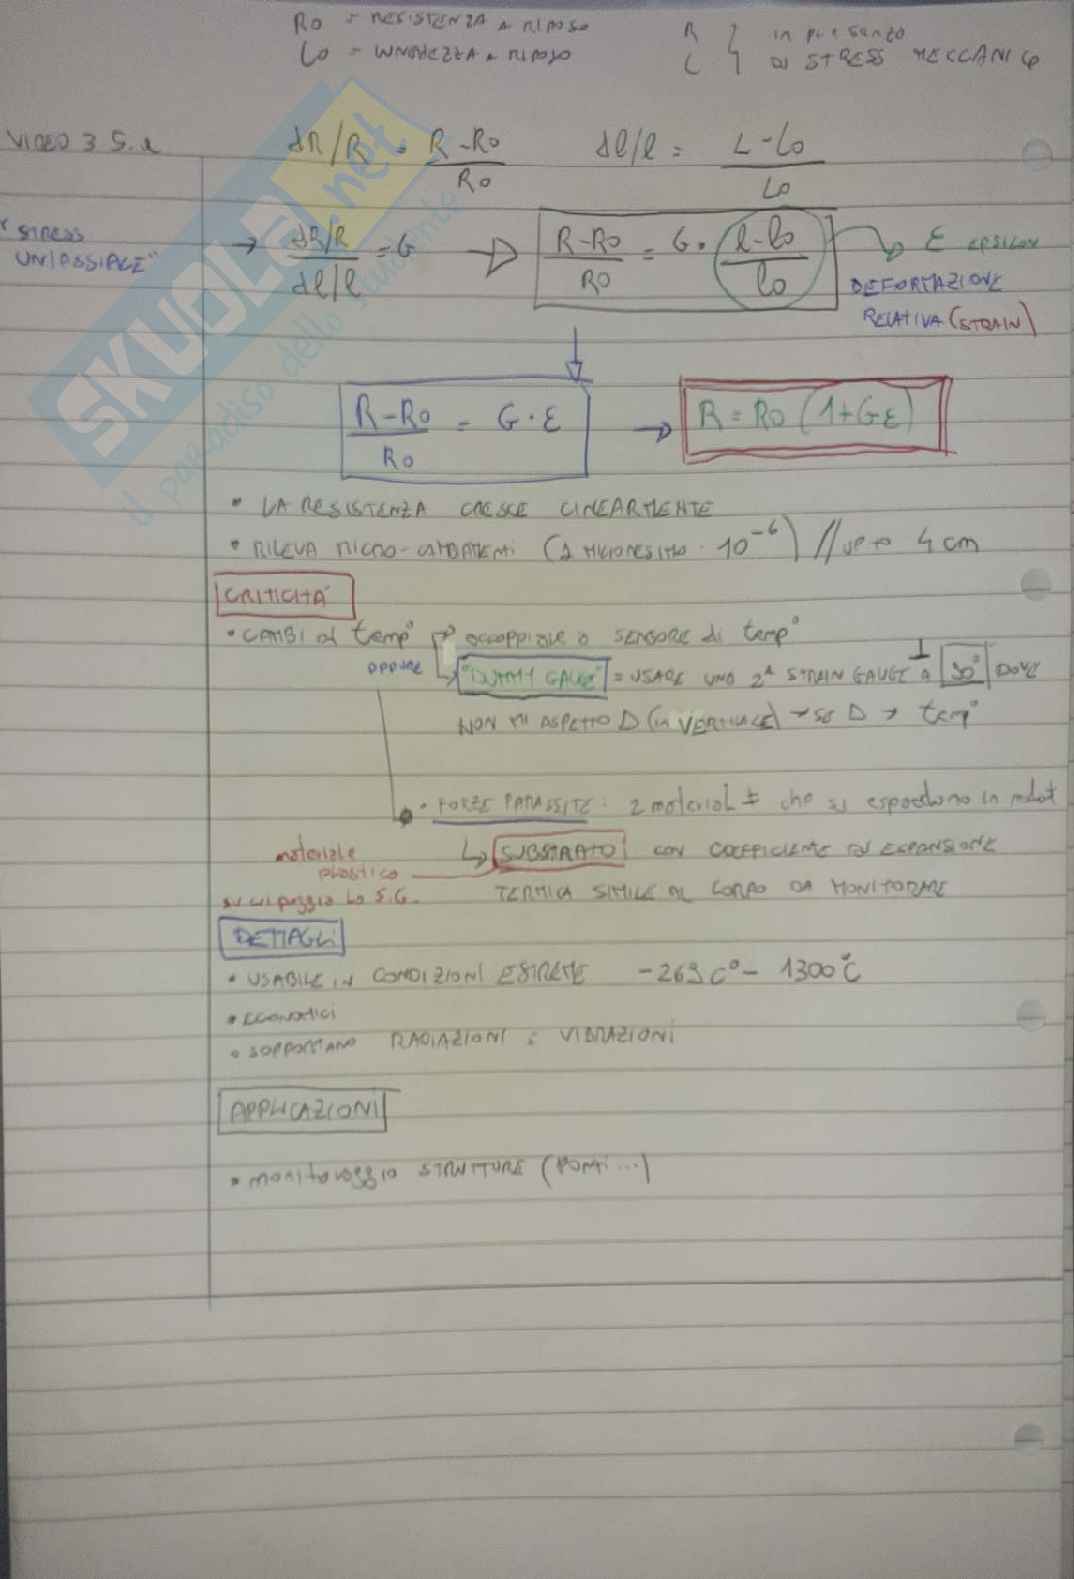 R0 = RESISTENZA A RIPOSO
L0 = LUNGHEZZA A RIPOSO
R
L } in presenza
DI STRESS MECCANICO
VIDEO 3 S.
dR/R = R-R0 / R0
dl/l = L-L0 / L0
"STRESS
UNIASSIALE"
→ dR/R / dl/l = G → R-R0 / R0 = G · l-l0 / l0 → ε EPSILON
DEFORMAZIONE
RELATIVA (STRAIN)
R-R0 / R0 = G · ε → R = R0 (1+Gε)
• LA RESISTENZA CRESCE LINEARMENTE
• RILEVA MICRO-CAMBIAMENTI (1 MILIONESIMO · 10⁻⁶) // up to 4 cm
CRITICITÀ
• CAMBI di temp° → accoppiare a SENSORE di temp°
OPPURE → "DUMMY GAUGE" = USARE UNO 2° STRAIN GAUGE A ⊥ 90° DOVE
NON MI ASPETTO Δ (in VERTICALE) → se Δ → temp°
• FORZE PARASSITE: 2 materiali ≠ che si espandono in modot
↳ SUBSTRATO CON COEFFICIENTE DI ESPANSIONE
TERMICA SIMILE AL CORPO DA MONITORARE
materiale
plastico
su cui poggia lo S.G.
DETTAGLI
• USABILE IN CONDIZIONI ESTREME -269 C° - 1300°C
• ECONOMICI
• SOPPORTANO RADIAZIONI e VIBRAZIONI
APPLICAZIONI
• monitoraggio STRUTTURE (PONTI ...)
SKUOLA.net
il paradiso dello studente